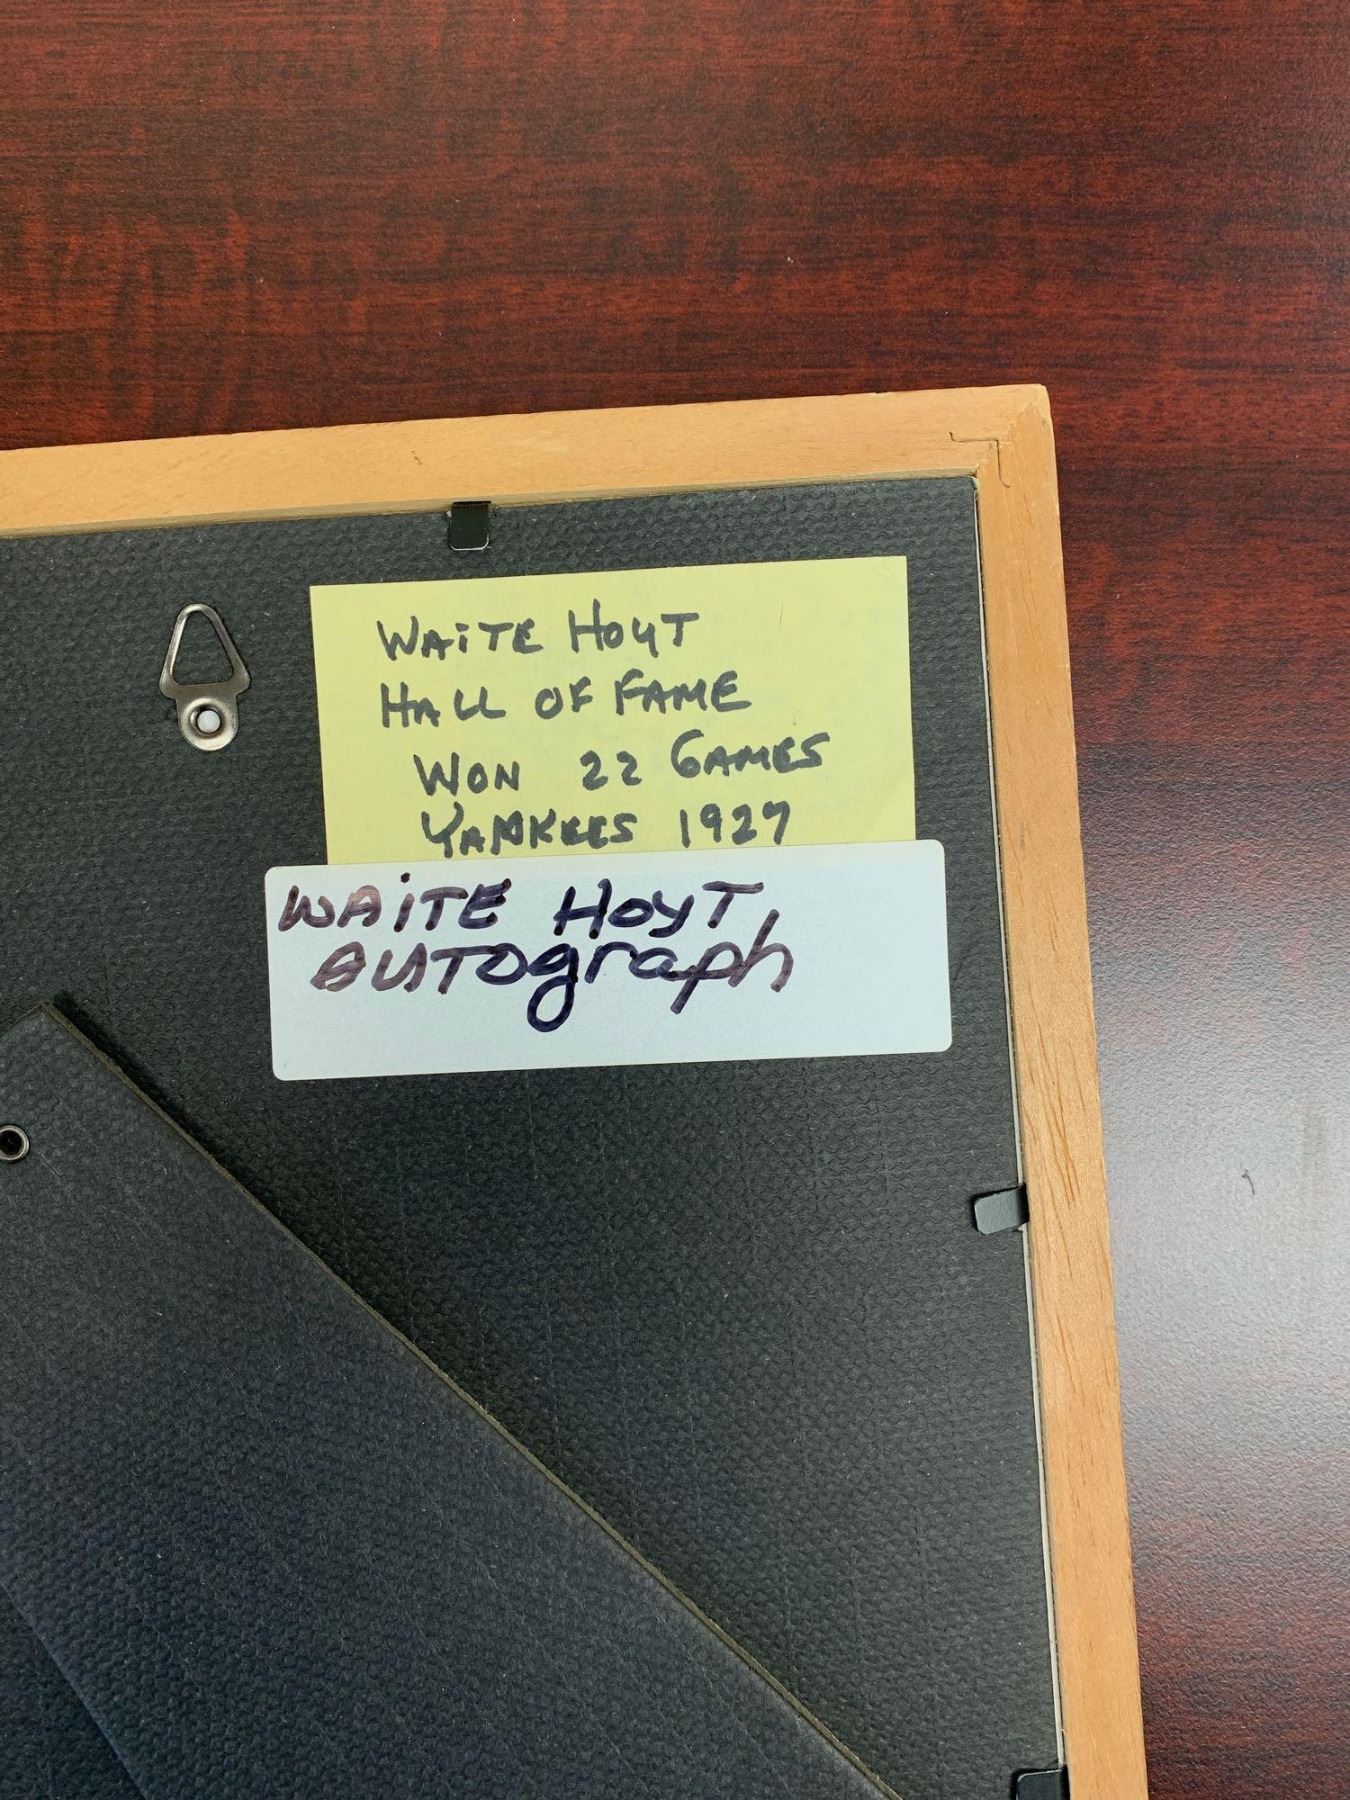 WAiTE HOYT
HALL OF FAME
WON 22 GAMES
YANKEES 1927
WAiTE HOYT
AUTOgraph